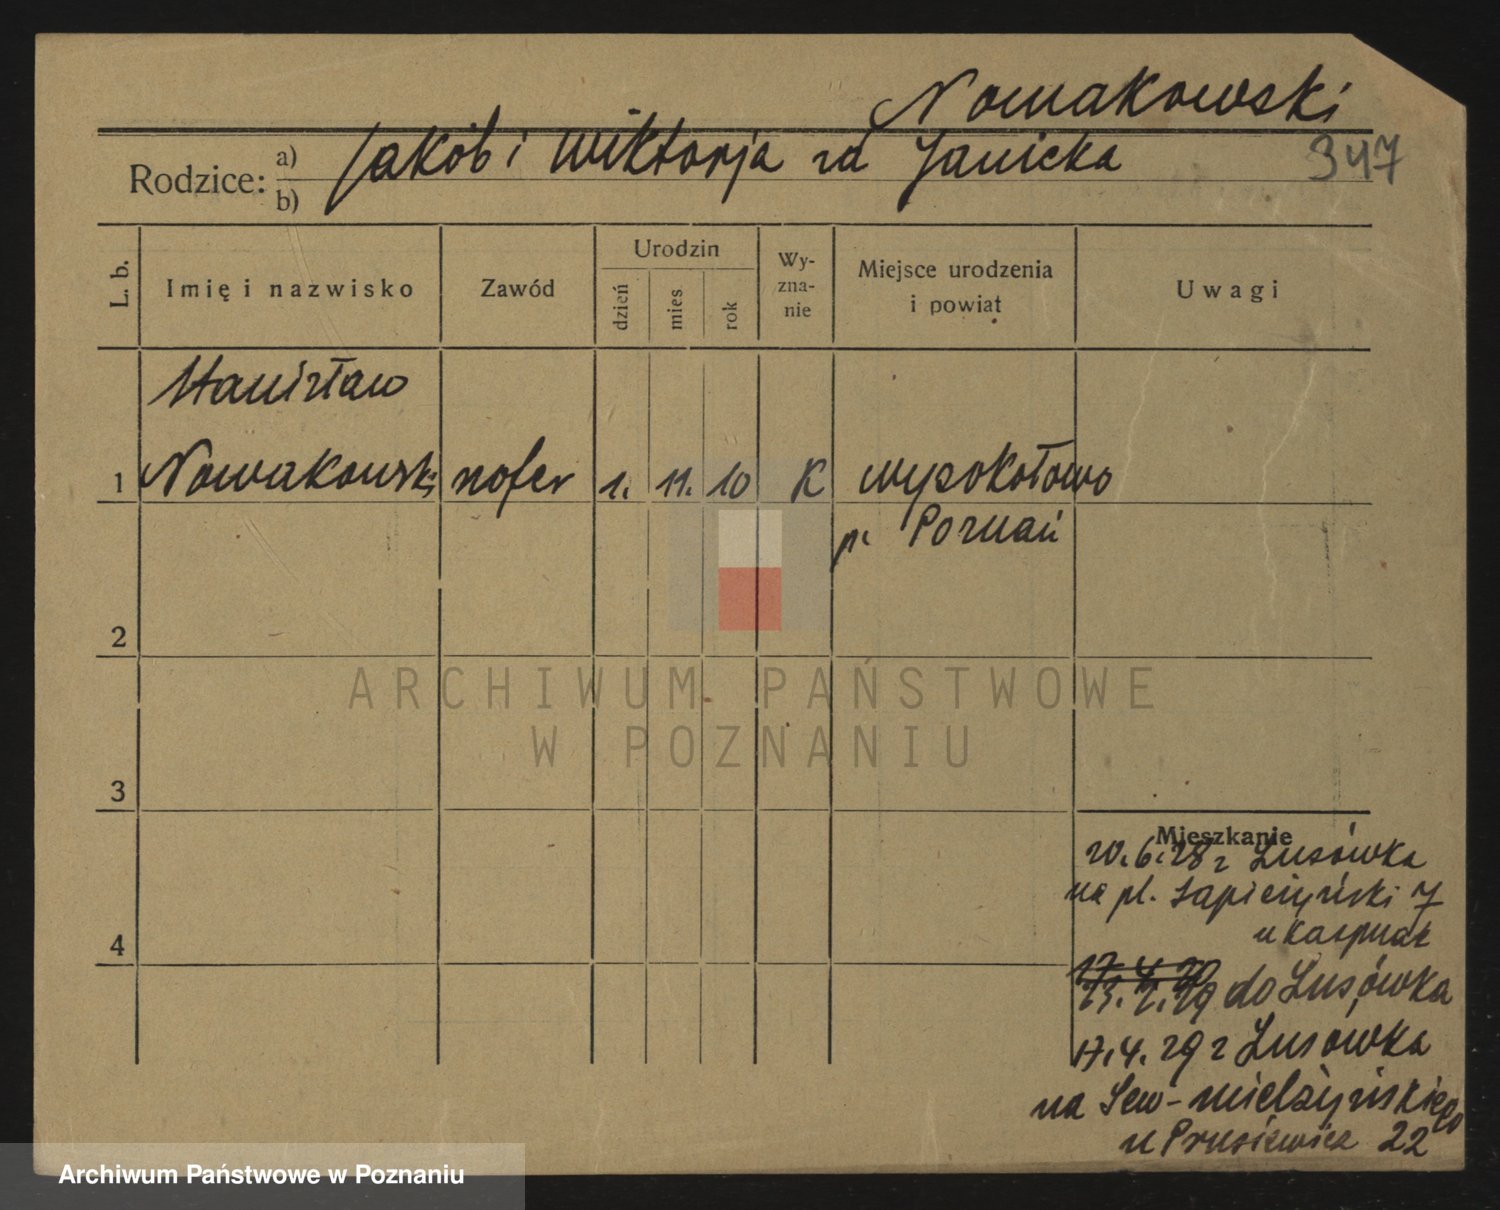 Nowakowski
347
Rodzice: a) Jakób i Wiktorja zd Janicka
b)
L. b. Imię i nazwisko Zawód Urodzin dzień mies rok Wyznanie Miejsce urodzenia i powiat Uwagi
Stanisław
1 Nowakowski szofer 1. 11. 10 K Wysokołowo
p. Poznań
2
ARCHIWUM PAŃSTWOWE
W POZNANIU
3
Mieszkanie
20.6.28 z Lusówka
na pl. Sapieżyński 7
u Kacpriak
4
17.4.29
do Lusówka
17.4.29 z Lusówka
na Sew-Mielżyńskiego
u Prusiewicz 22
Archiwum Państwowe w Poznaniu